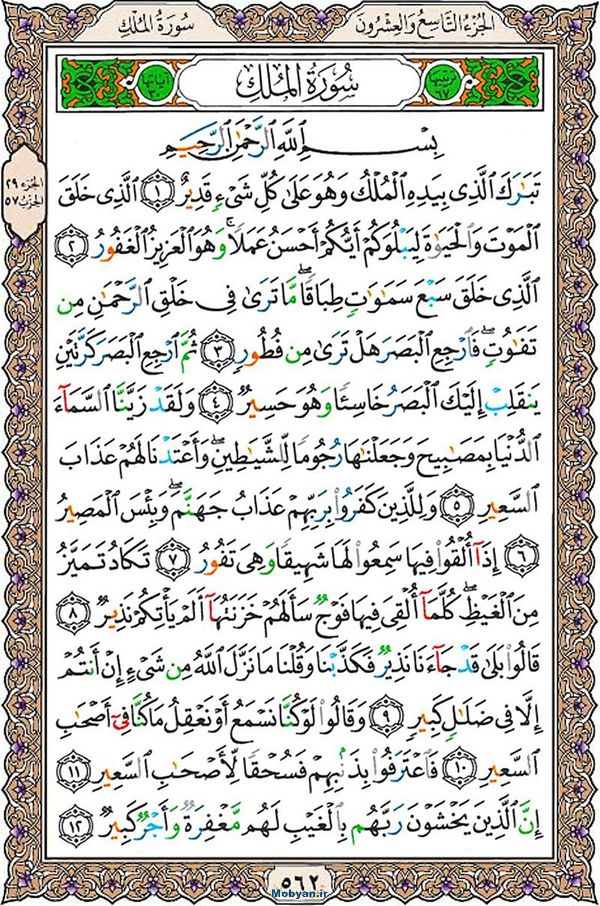 الجزء التاسع والعشرون
سورة الملك
سُورَةُ المُلكِ
بِسۡمِ ٱللَّهِ ٱلرَّحۡمَٰنِ ٱلرَّحِيمِ
تَبَٰرَكَ ٱلَّذِى بِيَدِهِ ٱلۡمُلۡكُ وَهُوَ عَلَىٰ كُلِّ شَىۡءٍ قَدِيرٌ ١ ٱلَّذِى خَلَقَ
الجزء ٢٩
الحزب ٥٧
ٱلۡمَوۡتَ وَٱلۡحَيَوٰةَ لِيَبۡلُوَكُمۡ أَيُّكُمۡ أَحۡسَنُ عَمَلًاۚ وَهُوَ ٱلۡعَزِيزُ ٱلۡغَفُورُ ٢
ٱلَّذِى خَلَقَ سَبۡعَ سَمَٰوَٰتٍ طِبَاقًاۖ مَّا تَرَىٰ فِى خَلۡقِ ٱلرَّحۡمَٰنِ مِن
تَفَٰوُتٍۖ فَٱرۡجِعِ ٱلۡبَصَرَ هَلۡ تَرَىٰ مِن فُطُورٍ ٣ ثُمَّ ٱرۡجِعِ ٱلۡبَصَرَ كَرَّتَيۡنِ
يَنقَلِبۡ إِلَيۡكَ ٱلۡبَصَرُ خَاسِئًا وَهُوَ حَسِيرٌ ٤ وَلَقَدۡ زَيَّنَّا ٱلسَّمَآءَ
ٱلدُّنۡيَا بِمَصَٰبِيحَ وَجَعَلۡنَٰهَا رُجُومًا لِّلشَّيَٰطِينِۖ وَأَعۡتَدۡنَا لَهُمۡ عَذَابَ
ٱلسَّعِيرِ ٥ وَلِلَّذِينَ كَفَرُوا۟ بِرَبِّهِمۡ عَذَابُ جَهَنَّمَۖ وَبِئۡسَ ٱلۡمَصِيرُ
٦ إِذَآ أُلۡقُوا۟ فِيهَا سَمِعُوا۟ لَهَا شَهِيقًا وَهِىَ تَفُورُ ٧ تَكَادُ تَمَيَّزُ
مِنَ ٱلۡغَيۡظِۖ كُلَّمَآ أُلۡقِىَ فِيهَا فَوۡجٌ سَأَلَهُمۡ خَزَنَتُهَآ أَلَمۡ يَأۡتِكُمۡ نَذِيرٌ ٨
قَالُوا۟ بَلَىٰ قَدۡ جَآءَنَا نَذِيرٌ فَكَذَّبۡنَا وَقُلۡنَا مَا نَزَّلَ ٱللَّهُ مِن شَىۡءٍ إِنۡ أَنتُمۡ
إِلَّا فِى ضَلَٰلٍ كَبِيرٍ ٩ وَقَالُوا۟ لَوۡ كُنَّا نَسۡمَعُ أَوۡ نَعۡقِلُ مَا كُنَّا فِىٓ أَصۡحَٰبِ
ٱلسَّعِيرِ ١٠ فَٱعۡتَرَفُوا۟ بِذَنۢبِهِمۡ فَسُحۡقًا لِّأَصۡحَٰبِ ٱلسَّعِيرِ ١١
إِنَّ ٱلَّذِينَ يَخۡشَوۡنَ رَبَّهُم بِٱلۡغَيۡبِ لَهُم مَّغۡفِرَةٌ وَأَجۡرٌ كَبِيرٌ ١٢
٥٦٢
Mobyan.ir